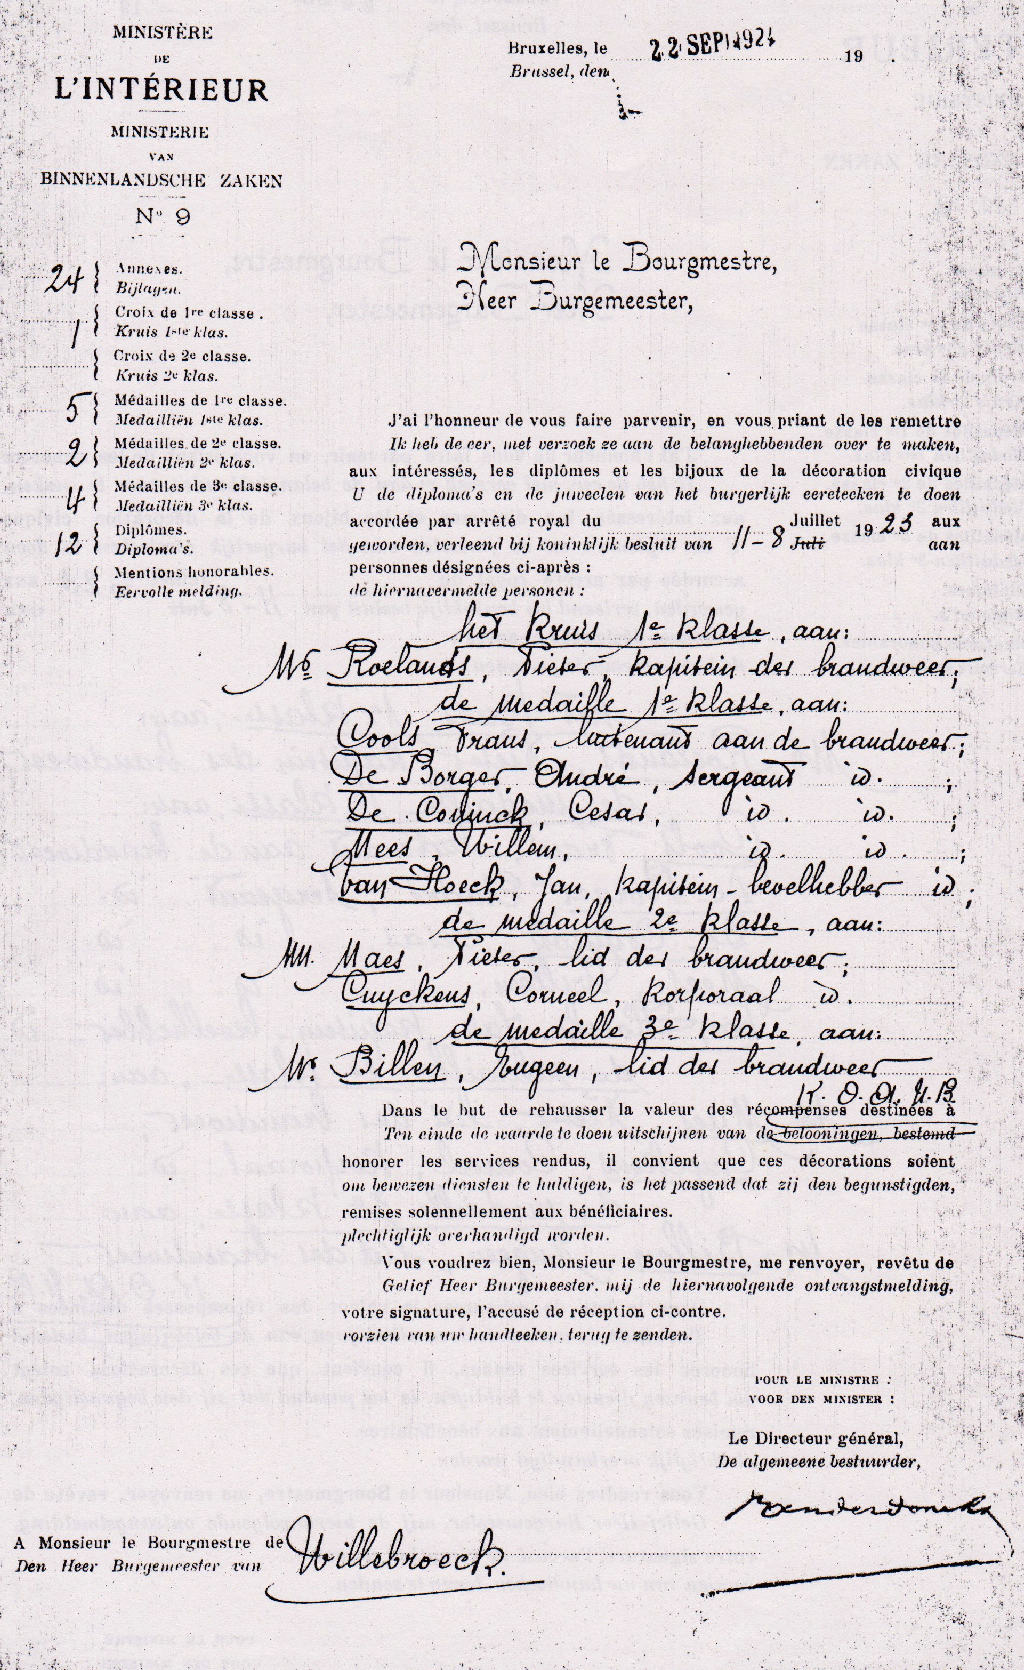 MINISTÈRE
DE
L'INTÉRIEUR
MINISTERIE
VAN
BINNENLANDSCHE ZAKEN
N° 9
Bruxelles, le 22 SEP 1924 19 .
Brussel, den
24 Annexes.
Bijlagen.
1 Croix de 1re classe.
Kruis 1ste klas.
Croix de 2e classe.
Kruis 2e klas.
5 Médailles de 1re classe.
Medailliën 1ste klas.
2 Médailles de 2e classe.
Medailliën 2e klas.
4 Médailles de 3e classe.
Medailliën 3e klas.
12 Diplômes.
Diploma's.
Mentions honorables.
Eervolle melding.
Monsieur le Bourgmestre,
Heer Burgemeester,
J'ai l'honneur de vous faire parvenir, en vous priant de les remettre
Ik heb de eer, met verzoek ze aan de belanghebbenden over te maken,
aux intéressés, les diplômes et les bijoux de la décoration civique
U de diploma's en de juweelen van het burgerlijk eereteeken te doen
accordée par arrêté royal du 11-8 Juillet 1923 aux
geworden, verleend bij koninklijk besluit van Juli aan
personnes désignées ci-après :
de hiernavermelde personen :
het Kruis 1e Klasse, aan:
Mr Roelands, Pieter, kapitein der brandweer;
de medaille 1e klasse, aan:
Cools, Frans, luitenant aan de brandweer;
De Borger, André, sergeant id. ;
De Coninck, Cesar, id. id. ;
Mees, Willem, id. id. ;
Van Hoeck, Jan, kapitein-bevelhebber id ;
de medaille 2e klasse, aan:
MM. Maes, Pieter, lid der brandweer;
Cuyckens, Corneel, korporaal id.
de medaille 3e klasse, aan:
Mr. Billen, Eugeen, lid der brandweer
K. O. A. U. B
Dans le but de rehausser la valeur des récompenses destinées à
Ten einde de waarde te doen uitschijnen van de belooningen, bestemd
honorer les services rendus, il convient que ces décorations soient
om bewezen diensten te huldigen, is het passend dat zij den begunstigden,
remises solennellement aux bénéficiaires.
plechtiglijk overhandigd worden.
Vous voudrez bien, Monsieur le Bourgmestre, me renvoyer, revêtu de
Gelief Heer Burgemeester, mij de hiernavolgende ontvangstmelding,
votre signature, l'accusé de réception ci-contre.
voorzien van uw handteeken, terug te zenden.
POUR LE MINISTRE :
VOOR DEN MINISTER :
Le Directeur général,
De algemeene bestuurder,
A Monsieur le Bourgmestre de Willebroeck.
Den Heer Burgemeester van